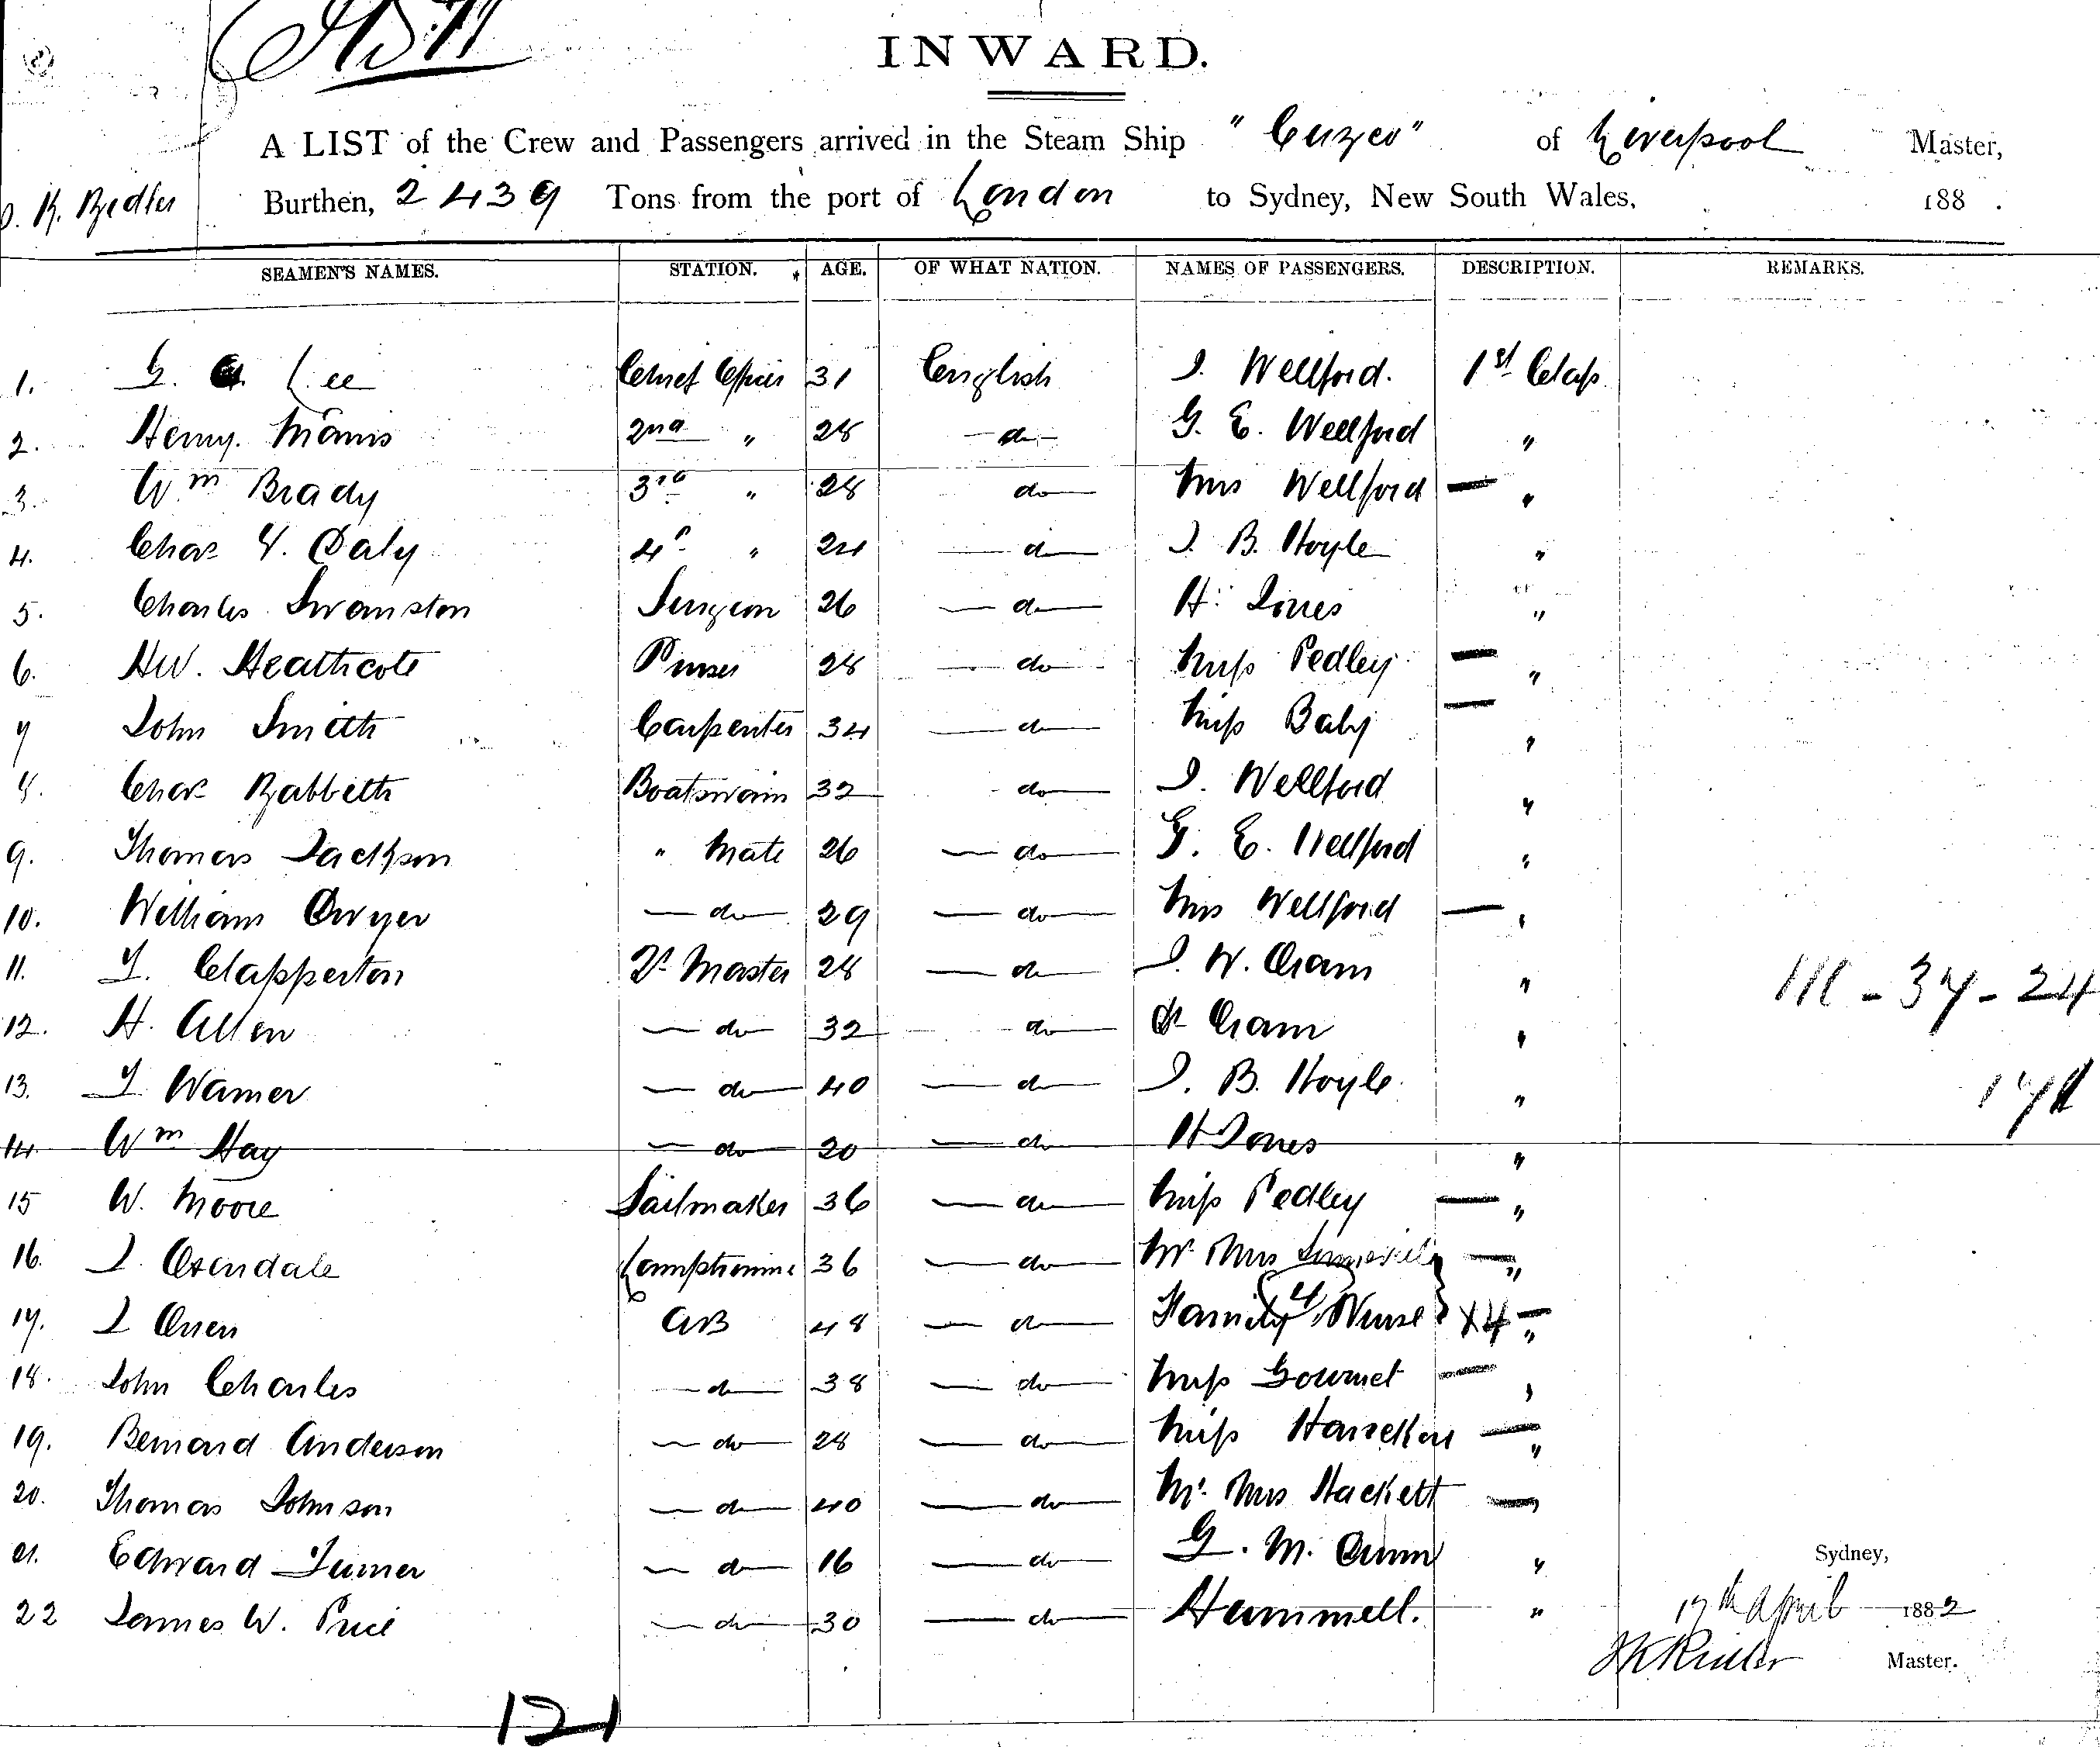 INWARD.
A LIST of the Crew and Passengers arrived in the Steam Ship "Cuzco" of Liverpool Master,
Burthen, 2439 Tons from the port of London to Sydney, New South Wales, 188 .
SEAMEN'S NAMES. STATION. AGE. OF WHAT NATION. NAMES OF PASSENGERS. DESCRIPTION. REMARKS.
1. G. A. Lee Chief Officer 31 English J. Wellford. 1st Class
2. Henry Manis 2nd " 28 - do - G. E. Wellford "
3. Wm Brady 3rd " 28 do Mrs Wellford — "
4. Chas Y. Daly 4th " 24 do J. B. Hoyle "
5. Charles Swanston Surgeon 26 do H. Jones "
6. HW. Heathcote Purser 28 do Miss Pedley — "
7 John Smith Carpenter 34 do Miss Baly — "
8. Chas Babbeth Boatswain 32 do J. Wellford "
9. Thomas Jackson " Mate 26 do G. E. Wellford "
10. William Dwyer do 29 do Mrs Wellford — "
11. T. Clapperton Qr Master 28 do J. W. Cram " 111 - 37 - 24
12. H. Allen do 32 do Dr Cram "
13. T Warner do 40 do J. B. Hoyle "
14. Wm Hay do 20 do H Jones "
15 W. Moore Sailmaker 36 do Miss Pedley — "
16. J. Oxendale Lamptrimmer 36 do Mr Mrs — "
17. J Owen AB 48 do Family 4 Nurse X4 — "
18. John Charles do 38 do Miss — "
19. Bernard Anderson do 28 do Miss — "
20. Thomas Johnson do 40 do Mr. Mrs Hackett — "
21. Edward Turner do 16 do G. M. Dunn "
22 James W. Price do 30 do Hammell. "
Sydney,
17th April 1882
Master.
121